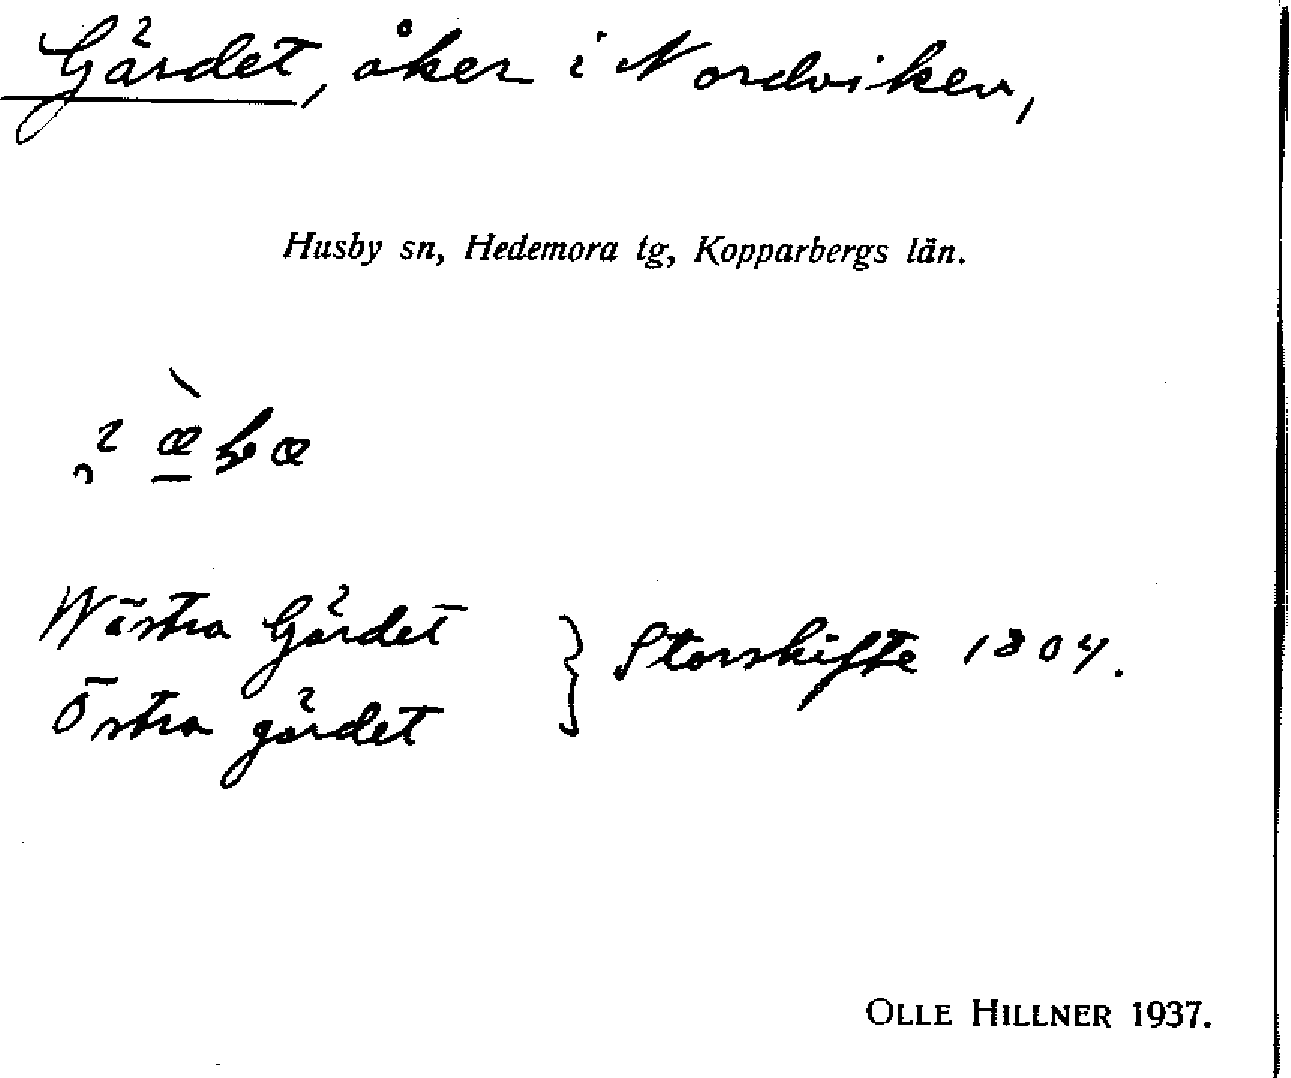 Gärdet, åker i Nordviken,
Husby sn, Hedemora tg, Kopparbergs län.
Wästra Gärdet
Östra gärdet } Storskifte 1804.
OLLE HILLNER 1937.